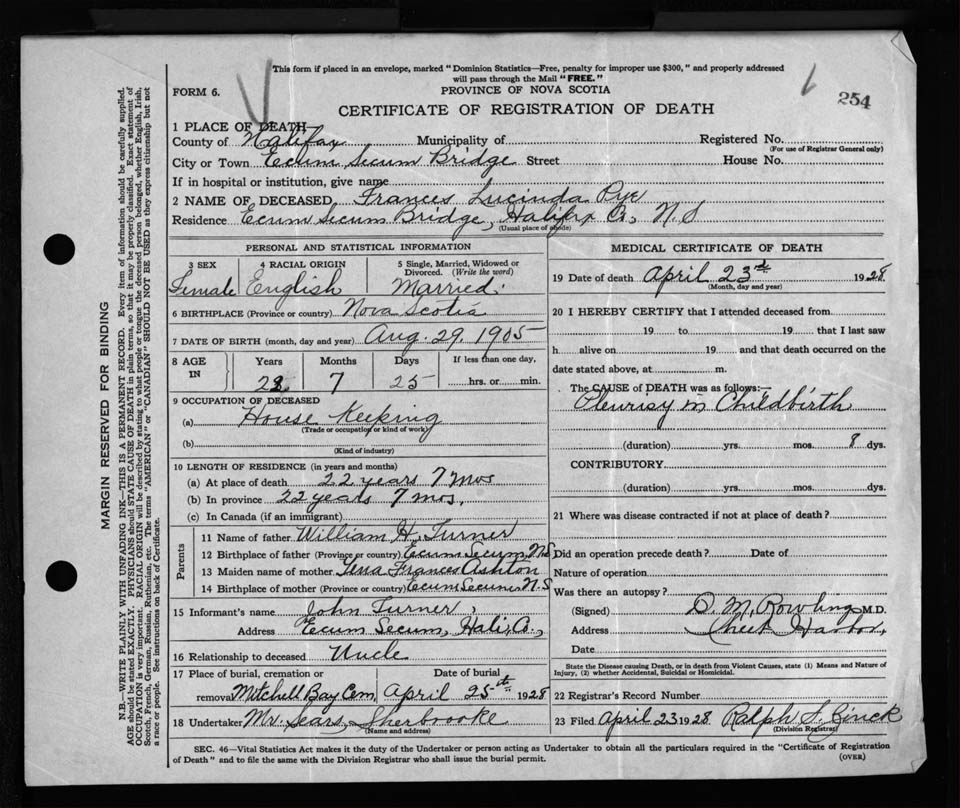 This form if placed in an envelope, marked "Dominion Statistics—Free, penalty for improper use $300," and properly addressed
will pass through the Mail "FREE."
FORM 6.
PROVINCE OF NOVA SCOTIA
254
CERTIFICATE OF REGISTRATION OF DEATH
1 PLACE OF DEATH
County of Halifax Municipality of Registered No.
(For use of Registrar General only)
City or Town Ecum Secum Bridge Street House No.
If in hospital or institution, give name
2 NAME OF DECEASED Frances Lucinda Pye
Residence Ecum Secum Bridge, Halifax Co, N.S
(Usual place of abode)
PERSONAL AND STATISTICAL INFORMATION
3 SEX 4 RACIAL ORIGIN 5 Single, Married, Widowed or
Divorced. (Write the word)
Female English Married.
6 BIRTHPLACE (Province or country) Nova Scotia
7 DATE OF BIRTH (month, day and year) Aug. 29, 1905
8 AGE IN Years Months Days If less than one day,
7 25 hrs. or min.
9 OCCUPATION OF DECEASED
(a) House Keeping
(Trade or occupation or kind of work)
(b)
(Kind of industry)
10 LENGTH OF RESIDENCE (in years and months)
(a) At place of death 22 years 7 mos
(b) In province 22 years 7 mos.
(c) In Canada (if an immigrant)
Parents
11 Name of father William H. Turner
12 Birthplace of father (Province or country) Ecum Secum, N.S
13 Maiden name of mother Lena Frances Ashton
14 Birthplace of mother (Province or country) Ecum Secum N.S
15 Informant's name John Turner,
Address Ecum Secum, Hali. Co.,
16 Relationship to deceased Uncle
17 Place of burial, cremation or Date of burial
removal Mitchell Bay Cem, April 25th 1928
18 Undertaker Mr. Sears, Sherbrooke
(Name and address)
MEDICAL CERTIFICATE OF DEATH
19 Date of death April 23rd 1928
(Month, day and year)
20 I HEREBY CERTIFY that I attended deceased from
19 to 19 that I last saw
h alive on 19 and that death occurred on the
date stated above, at m.
The CAUSE of DEATH was as follows:—
Pleurisy in Childbirth
(duration) yrs. mos. 8 dys.
CONTRIBUTORY
(duration) yrs. mos. dys.
21 Where was disease contracted if not at place of death?
Did an operation precede death? Date of
Nature of operation
Was there an autopsy?
(Signed) D. M. Rowlings M.D.
Address Harbor,
Date
State the Disease causing Death, or in death from Violent Causes, state (1) Means and Nature of
Injury, (2) whether Accidental, Suicidal or Homicidal.
22 Registrar's Record Number
23 Filed April 23 1928 Ralph S.
(Division Registrar)
SEC. 46—Vital Statistics Act makes it the duty of the Undertaker or person acting as Undertaker to obtain all the particulars required in the "Certificate of Registration
of Death" and to file the same with the Division Registrar who shall issue the burial permit.
(OVER)
MARGIN RESERVED FOR BINDING
N.B.—WRITE PLAINLY WITH UNFADING INK—THIS IS A PERMANENT RECORD. Every item of information should be carefully supplied.
AGE should be stated EXACTLY. PHYSICIANS should STATE CAUSE OF DEATH in plain terms, so that it may be properly classified. Exact statement of
OCCUPATION is very important. RACIAL ORIGIN will be described by stating to what people or tongue the deceased person belonged, whether English, Irish,
Scotch, French, German, Russian, Ruthenian, etc. The terms "AMERICAN" or "CANADIAN" SHOULD NOT BE USED as they express citizenship but not
a race or people. See instructions on back of Certificate.